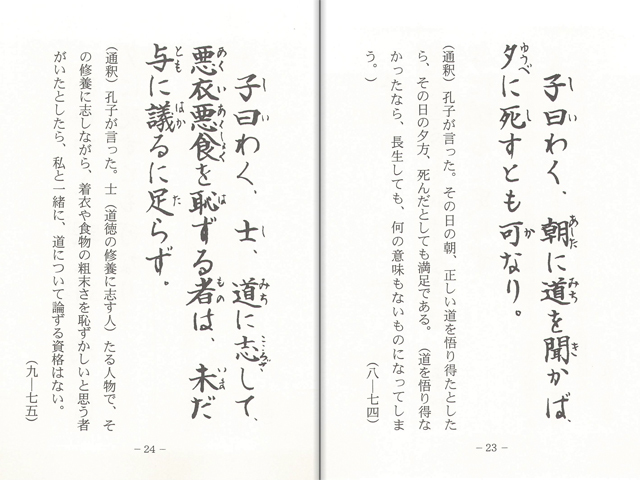 子曰わく、朝に道を聞かば、
夕に死すとも可なり。
(通釈)孔子が言った。その日の朝、正しい道を悟り得たとした
ら、その日の夕方、死んだとしても満足である。(道を悟り得な
かったなら、長生しても、何の意味もないものになってしま
う。)
(八―七四)
– 23 –
子曰わく、士、道に志して、
悪衣悪食を恥ずる者は、未だ
与に議るに足らず。
(通釈)孔子が言った。士(道徳の修養に志す人)たる人物で、そ
の修養に志しながら、着衣や食物の粗末さを恥ずかしいと思う者
がいたとしたら、私と一緒に、道について論ずる資格はない。
(九―七五)
– 24 –